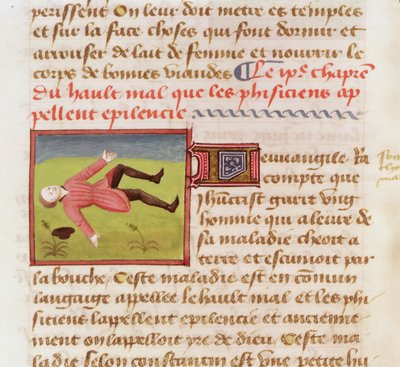 perissent On leur doit metre es temples
et sur la face choses qui font dormir et
arrouser de lait de femme et nourrir le
corps de bonnes viandes Le ixe chapre
Du hault mal que les phisiciens ap
pellent epilencie
Leuuangile Ra
compte que
Jhucrist garit ung
homme qui a leure de
sa maladie cheoit a
terre et escumoit par
la bouche Ceste maladie est en commun
langaige appellee le hault mal et les phi
siciens lappellent epilencie et ancienne
ment on lappelloit yre de dieu Ceste ma
ladie selon constantin est une petite hu